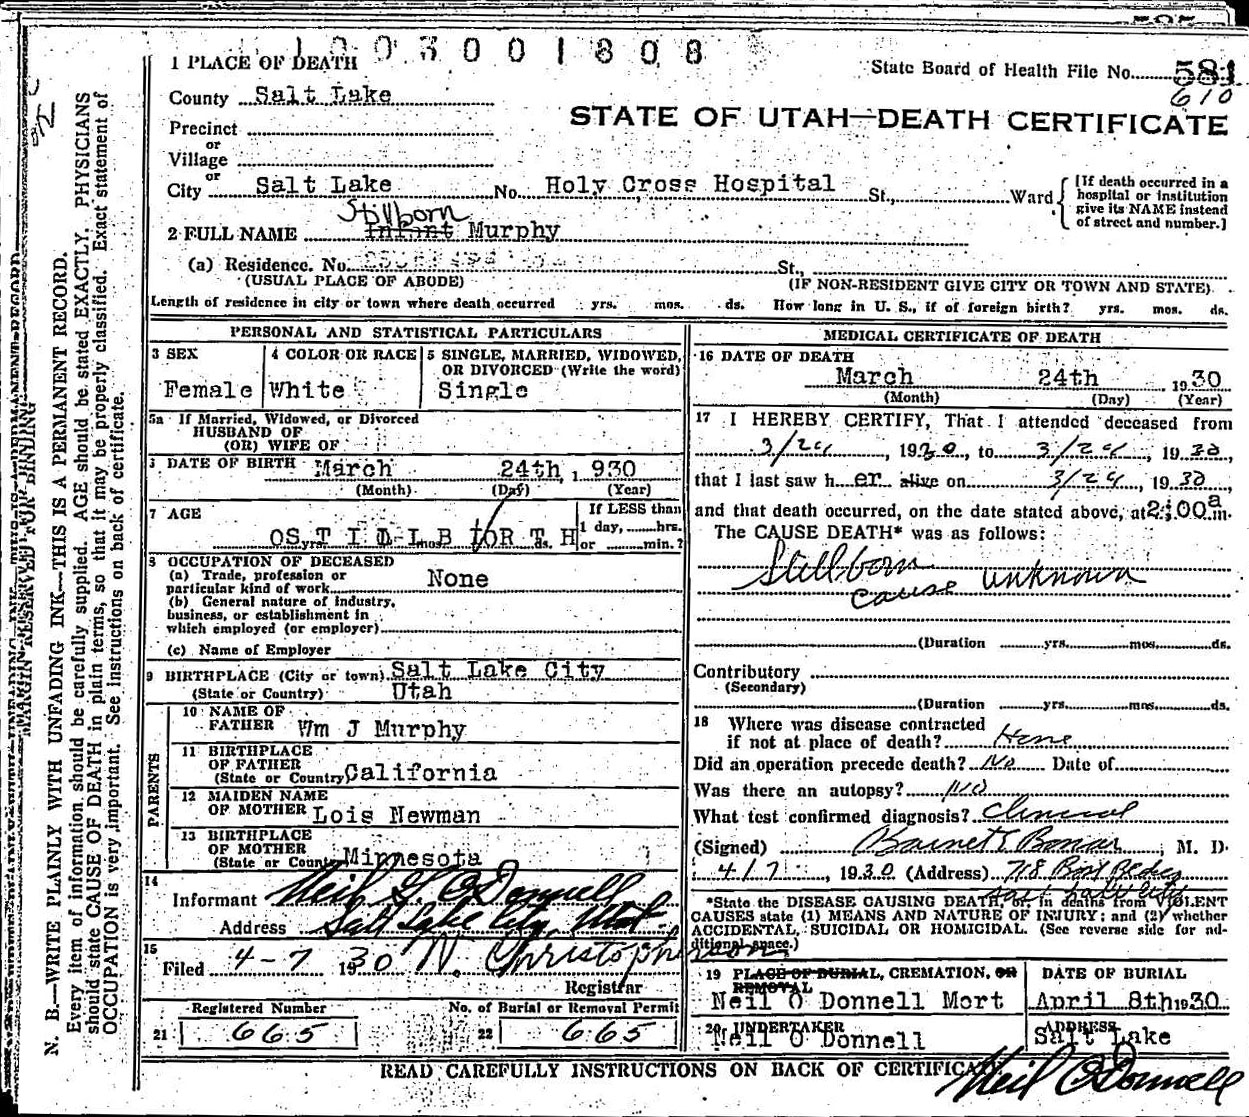 1003001808
1 PLACE OF DEATH
State Board of Health File No. 581
610
County Salt Lake
STATE OF UTAH—DEATH CERTIFICATE
Precinct
or
Village
or
City Salt Lake No. Holy Cross Hospital St., Ward
[If death occurred in a
hospital or institution
give its NAME instead
of street and number.]
Stillborn
2 FULL NAME Infant Murphy
(a) Residence. No. St.,
(USUAL PLACE OF ABODE) (IF NON-RESIDENT GIVE CITY OR TOWN AND STATE)
Length of residence in city or town where death occurred yrs. mos. ds. How long in U. S., if of foreign birth? yrs. mos. ds.
PERSONAL AND STATISTICAL PARTICULARS
3 SEX 4 COLOR OR RACE 5 SINGLE, MARRIED, WIDOWED,
OR DIVORCED (Write the word)
Female White Single
5a If Married, Widowed, or Divorced
HUSBAND OF
(OR) WIFE OF
DATE OF BIRTH March 24th, 1930
(Month) (Day) (Year)
7 AGE If LESS than
1 day, hrs.
or min.?
STILLBIRTH
yrs. mos. ds.
8 OCCUPATION OF DECEASED
(a) Trade, profession or
particular kind of work None
(b) General nature of industry,
business, or establishment in
which employed (or employer)
(c) Name of Employer
9 BIRTHPLACE (City or town) Salt Lake City
(State or Country) Utah
PARENTS
10 NAME OF
FATHER Wm J Murphy
11 BIRTHPLACE
OF FATHER
(State or Country) California
12 MAIDEN NAME
OF MOTHER Lois Newman
13 BIRTHPLACE
OF MOTHER
(State or Country) Minnesota
14
Informant Neil G. O'Donnell
Address Salt Lake City, Utah
15
Filed 4-7 1930 N. Christopherson
Registrar
Registered Number No. of Burial or Removal Permit
21 665 22 665
MEDICAL CERTIFICATE OF DEATH
16 DATE OF DEATH
March 24th 1930
(Month) (Day) (Year)
17 I HEREBY CERTIFY, That I attended deceased from
3/24, 1930, to 3/24, 1930,
that I last saw h er alive on 3/24, 1930,
and that death occurred, on the date stated above, at 2:00 a m.
The CAUSE DEATH* was as follows:
Stillborn
cause unknown
(Duration yrs. mos. ds.
Contributory
(Secondary)
(Duration yrs. mos. ds.
18 Where was disease contracted
if not at place of death? Here
Did an operation precede death? No Date of
Was there an autopsy? No
What test confirmed diagnosis? Clinical
(Signed) Barnet E Bonar, M. D.
4/7, 1930 (Address) 718 Bldg
Salt Lake City
*State the DISEASE CAUSING DEATH, or in deaths from VIOLENT
CAUSES state (1) MEANS AND NATURE OF INJURY; and (2) whether
ACCIDENTAL, SUICIDAL OR HOMICIDAL. (See reverse side for ad-
ditional space.)
19 PLACE OF BURIAL, CREMATION, OR
REMOVAL
DATE OF BURIAL
Neil O Donnell Mort April 8th 1930
20 UNDERTAKER ADDRESS
Neil O Donnell Salt Lake
READ CAREFULLY INSTRUCTIONS ON BACK OF CERTIFICATE
Neil O'Donnell
MARGIN RESERVED FOR BINDING
N. B.—WRITE PLAINLY WITH UNFADING INK—THIS IS A PERMANENT RECORD.
Every item of information should be carefully supplied. AGE should be stated EXACTLY. PHYSICIANS
should state CAUSE OF DEATH in plain terms, so that it may be properly classified. Exact statement of
OCCUPATION is very important. See instructions on back of certificate.